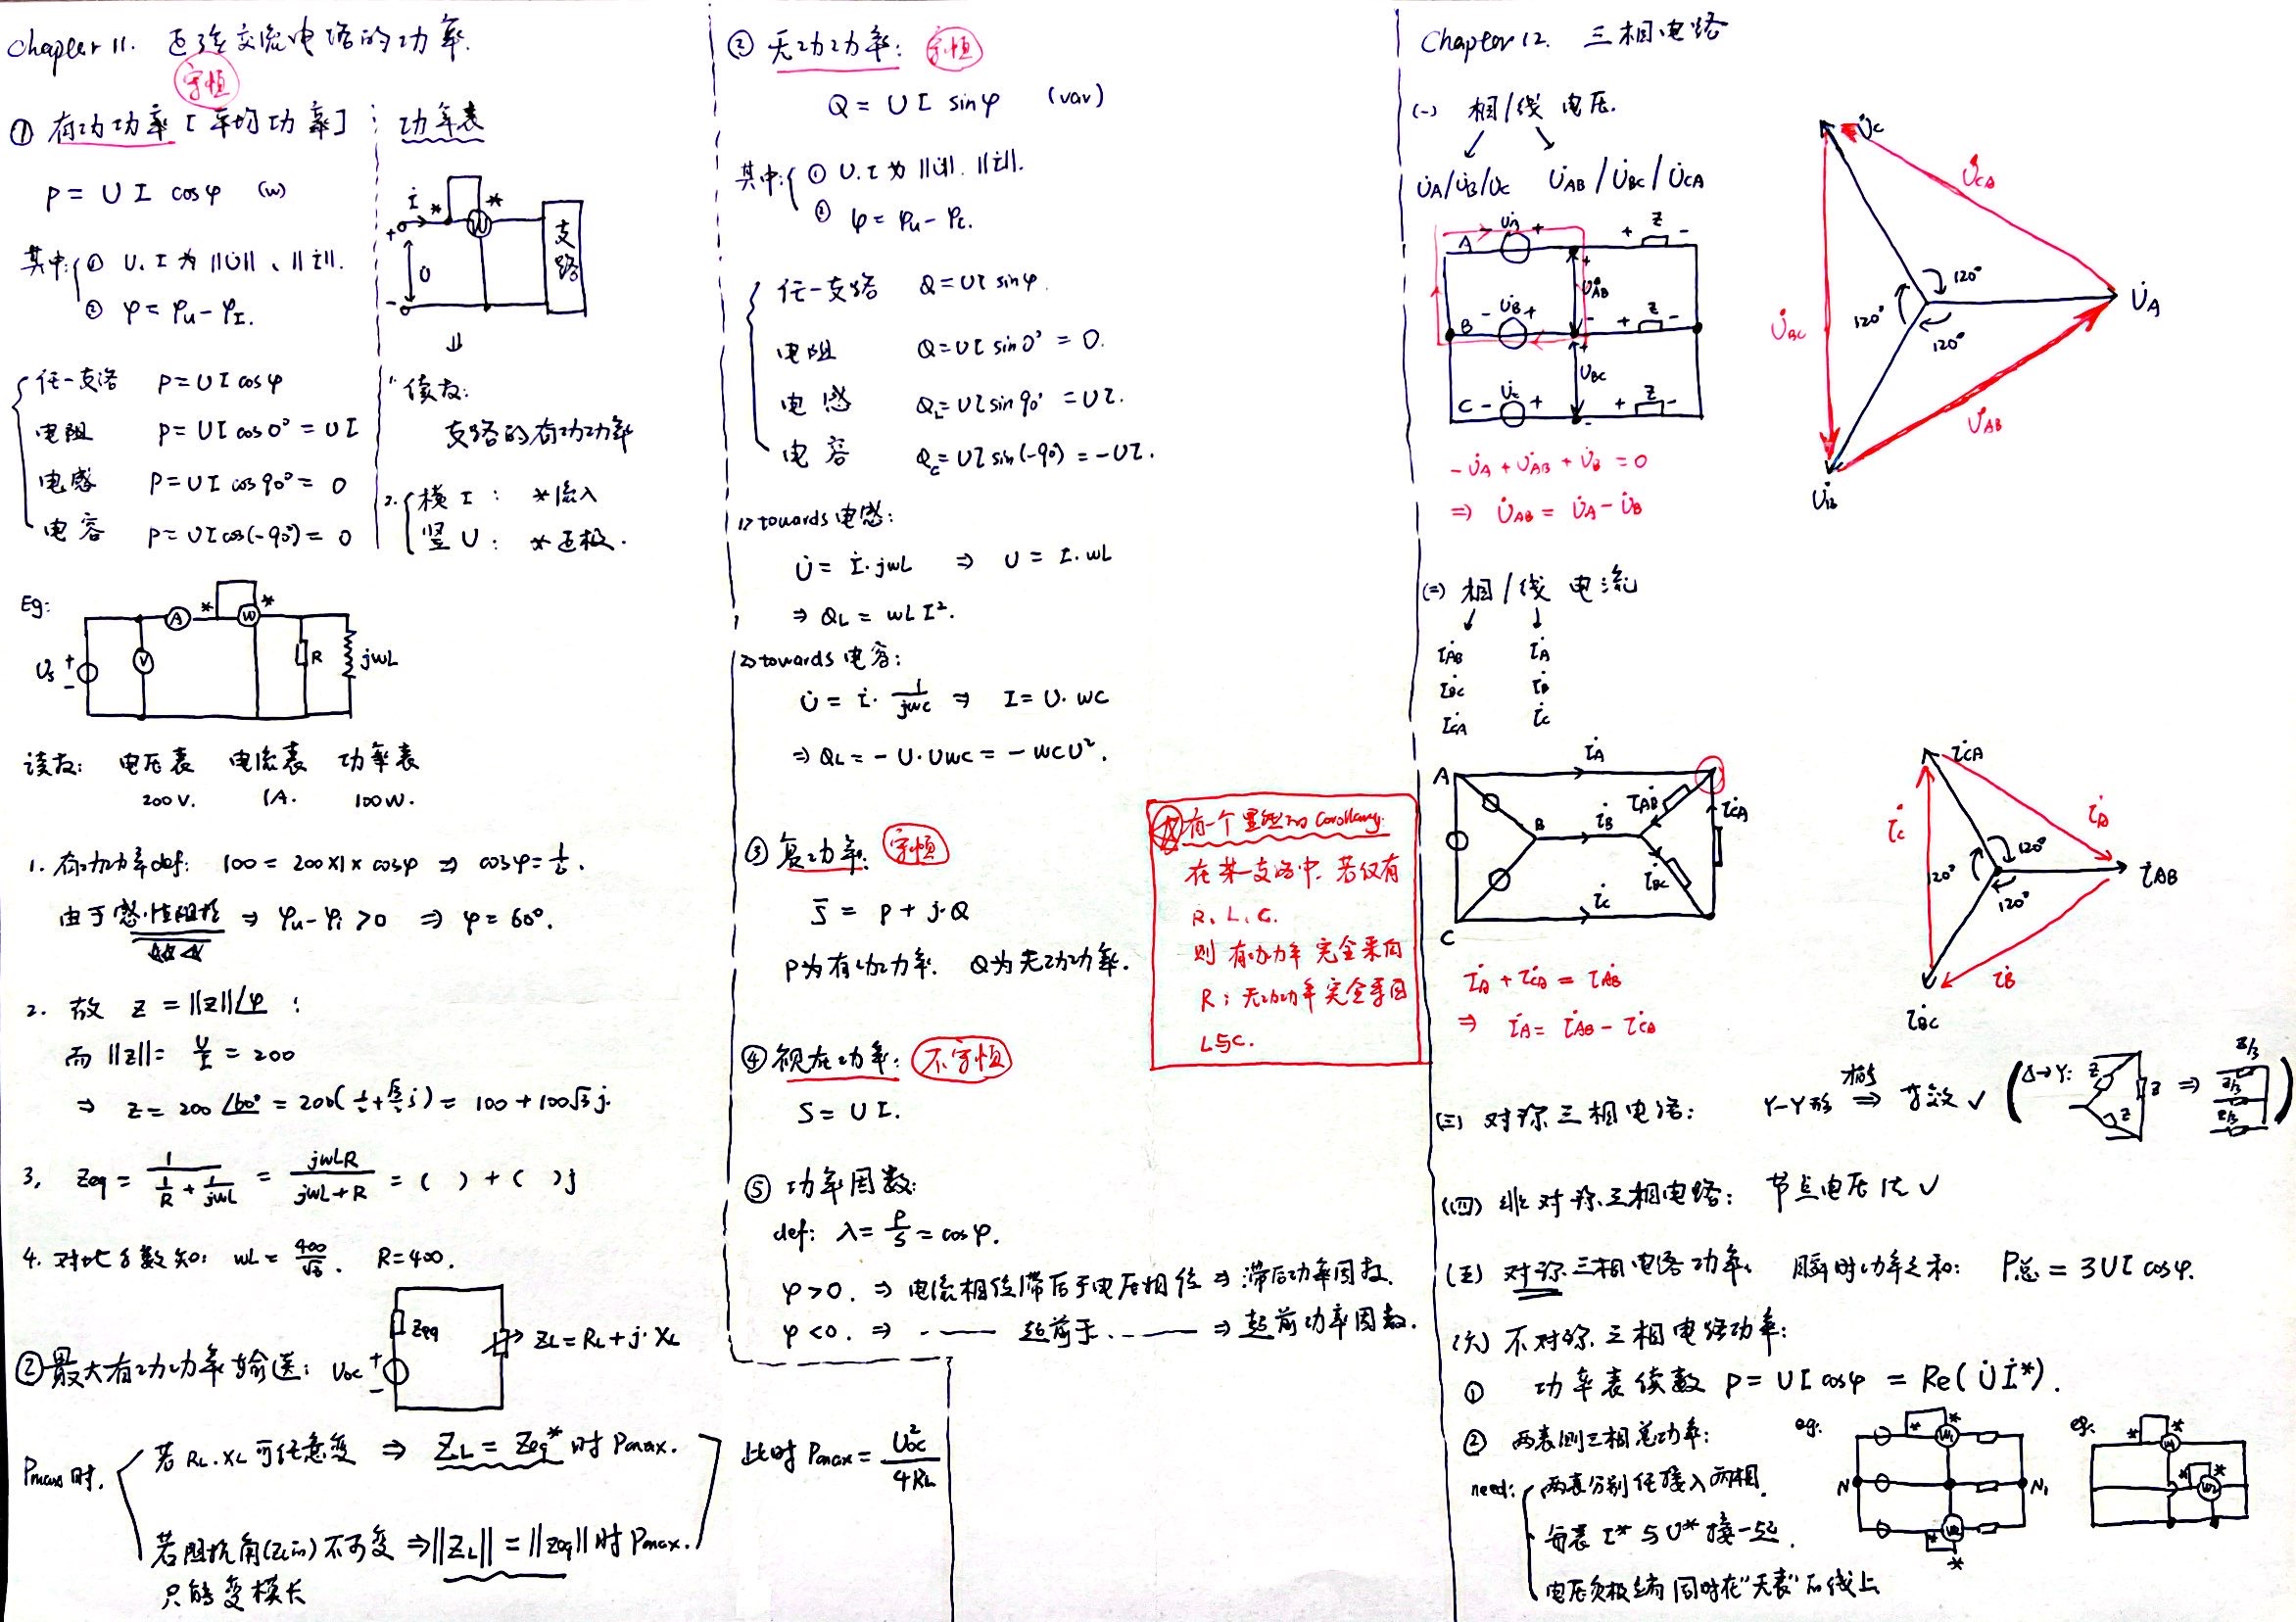 Chapter 11. 正弦交流电路的功率.
守恒
① 有功功率 [平均功率]
P = U I cosφ (w)
其中: ① U. I 为 ||U̇||、||İ||.
② φ = φu - φI.
任一支路 P = U I cosφ
电阻 P = U I cos0° = U I
电感 P = U I cos90° = 0
电容 P = U I cos(-90°) = 0
功率表
İ * *
W
+
U
-
支路
⇓
1. 读数:
支路的有功功率
2. 横 I: *流入
竖 U: *正极.
Eg:
Us + - V A * W * R jωL
读数: 电压表 电流表 功率表
200V. 1A. 100W.
1. 有功功率def: 100 = 200×1×cosφ ⇒ cosφ = 1/2.
由于感性阻抗 ⇒ φu - φi > 0 ⇒ φ = 60°.
2. 故 Z = ||Z||∠φ :
而 ||Z|| = U/I = 200
⇒ Z = 200∠60° = 200(1/2 + √3/2 j) = 100 + 100√3 j.
3. Zeq = 1/(1/R + 1/jωL) = jωLR/(jωL + R) = ( ) + ( )j
4. 对比系数知: ωL = 400/√3. R = 400.
② 最大有功功率输送: Uoc + - Zeq ZL = RL + j·XL
Pmax时.
若 RL. XL 可任意变 ⇒ ZL = Zeq* 时 Pmax.
若阻抗角(ZL的)不可变 ⇒ ||ZL|| = ||Zeq|| 时 Pmax.
只能变模长
此时 Pmax = Uoc²/4RL
② 无功功率: 守恒
Q = U I sinφ (var)
其中: ① U. I 为 ||U̇||. ||İ||.
② φ = φu - φi.
任一支路 Q = UI sinφ.
电阻 Q = UI sin0° = 0.
电感 QL = UI sin90° = UI.
电容 Qc = UI sin(-90°) = -UI.
1> towards 电感:
U̇ = İ·jωL ⇒ U = I·ωL
⇒ QL = ωL I².
2> towards 电容:
U̇ = İ·1/jωc ⇒ I = U·ωC
⇒ QL = -U·Uωc = -ωCU².
③ 复功率: 守恒
S̅ = P + j·Q
P为有功功率. Q为无功功率.
有一个显然的 Corollary:
在某一支路中. 若仅有
R、L、C.
则 有功功率 完全来自
R; 无功功率完全来自
L与C.
④ 视在功率: 不守恒
S = U I.
⑤ 功率因数:
def: λ = P/S = cosφ.
φ > 0. ⇒ 电流相位滞后于电压相位 ⇒ 滞后功率因数.
φ < 0. ⇒ ·—— 超前于·—— ⇒ 超前功率因数.
Chapter 12. 三相电路
(一) 相/线 电压.
U̇A/U̇B/U̇C U̇AB/U̇BC/U̇CA
A U̇A + + Z -
U̇AB
B - U̇B + + Z -
U̇BC
C - U̇C + + Z -
-U̇A + U̇AB + U̇B = 0
⇒ U̇AB = U̇A - U̇B
U̇C
U̇CA
120°
U̇A
U̇BC
120°
120°
U̇AB
U̇B
(二) 相/线 电流
İAB İA
İBC İB
İCA İC
A İA
İAB İCA
B İB
İBC
C İC
İA + İCA = İAB
⇒ İA = İAB - İCA
İCA
İC
İA
120°
120°
İAB
120°
İB
İBC
(三) 对称三相电路: Y-Y形 ⇒ 有效 ✓ (Δ→Y: Z Z Z ⇒ Z/3 Z/3 Z/3)
(四) 非对称三相电路: 节点电压法 ✓
(五) 对称三相电路功率. 瞬时功率之和: P总 = 3UI cosφ.
(六) 不对称三相电路功率:
① 功率表读数 P = U I cosφ = Re(U̇ İ*).
② 两表测三相总功率:
need: 两表分别任接入两相.
每表 I* 与 U* 接一起.
电压负极端同时在"无表"的线上
eg: * * W1 N N1 W2 * *
eg. * * W1 * * W2